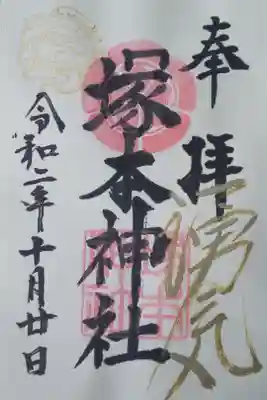 奉拝
塚本神社
令和二年十月廿日
勇気